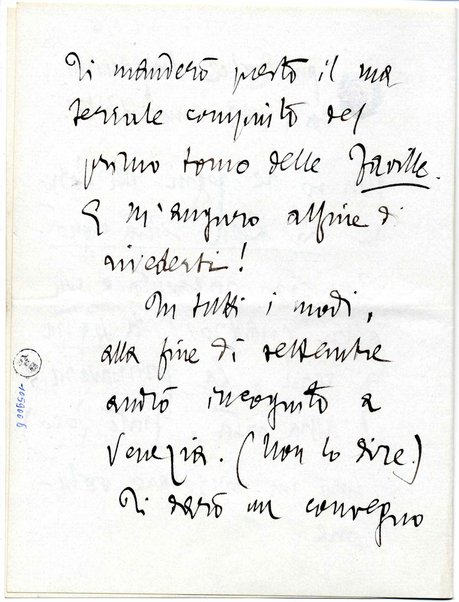 Ti manderò presto il ma
teriale compiuto del
primo tomo delle Faville.
E m'auguro alfine di
rivederti!
In tutti i modi,
alla fine di settembre
andrò incognito a
Venezia. (Non lo dire.)
Ti darò un convegno
105900 6